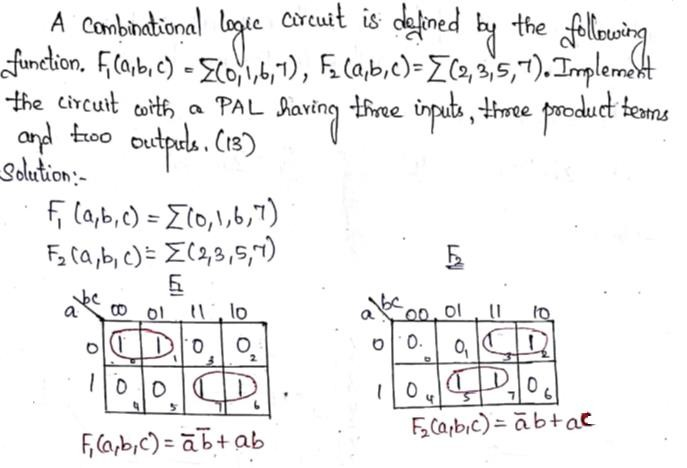 A combinational logic circuit is defined by the following
function. F₁(a,b,c) = Σ(0,1,6,7), F₂(a,b,c) = Σ(2,3,5,7). Implement
the circuit with a PAL having three inputs, three product terms
and two outputs. (13)
Solution:-
F₁ (a,b,c) = Σ(0,1,6,7)
F₂ (a,b,c) = Σ(2,3,5,7)
F₁
a bc 00 01 11 10
0 1 0 1 1 0 3 0 2
1 0 4 0 5 1 7 1 6
F₁(a,b,c) = a̅b̅ + ab
F₂
a bc 00 01 11 10
0 0. 0 0 1 1 3 1 2
1 0 4 1 5 1 7 0 6
F₂(a,b,c) = a̅b + ac